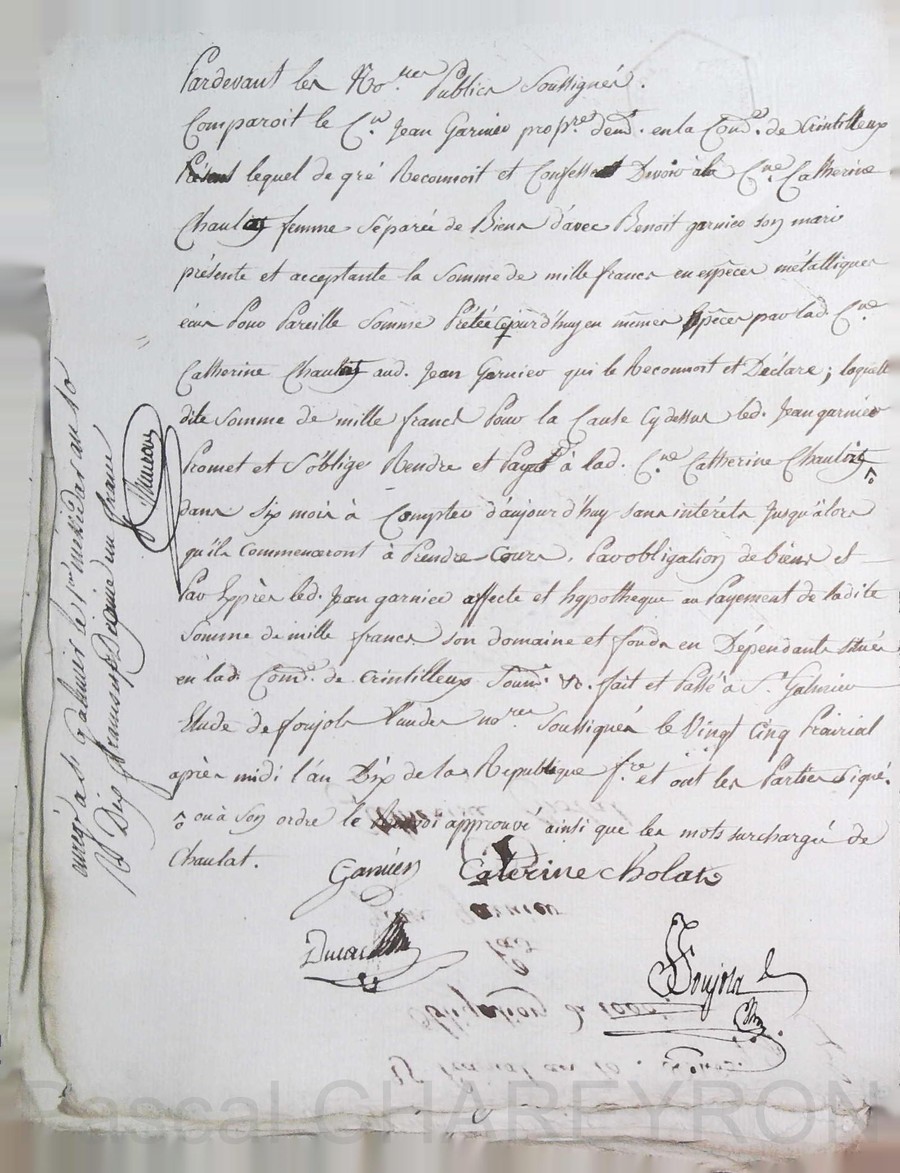 Pardevant les No.res Publics Soussignés.
Comparoit le C.en Jean Garnier prop.re dem.t en la Com.e de Crintilleux
Présent lequel de gré Reconnoit et Confesse Devoir à la C.ne Catherine
Chaulat femme Séparée de Biens d'avec Benoit garnier son mari
présente et acceptante la Somme de mille francs en espèces métalliques
écus Pour Pareille Somme Prêtée cejourd'huy en mêmes Espèces par lad. C.ne
Catherine Chaulat aud. Jean Garnier qui le Reconnoit et Déclare ; laquelle
dite Somme de mille francs Pour la Cause Cydessus led. Jean garnier
Promet et S'oblige Rendre et Payer à lad. C.ne Catherine Chaulat
dans six mois à Compter d'aujourd'huy sans intérêts Jusqu'alors
qu'ils Commenceront à Prendre Cours, Par obligation de biens et
Par Exprès led. Jean garnier affecte et hypothèque au Payement de ladite
Somme de mille francs son domaine et fonds en Dépendants situés
en lad. Com.e de Crintilleux Soum. &. fait et Passé à S.t Galmier
Etude de foujols l'un des no.res Soussignés le Vingt Cinq Prairial
après midi l'an Dix de la République f.se et ont les Parties Signé.
ou à Son ordre le Renvoi approuvé ainsi que les mots surchargés de
Chaulat.
Garnier Caterine Cholat
Foujols
enreg.é à S.t Galmier le 1.er messidor an 10
R. Dix francs Dixième un franc
Pascal CHAREYRON